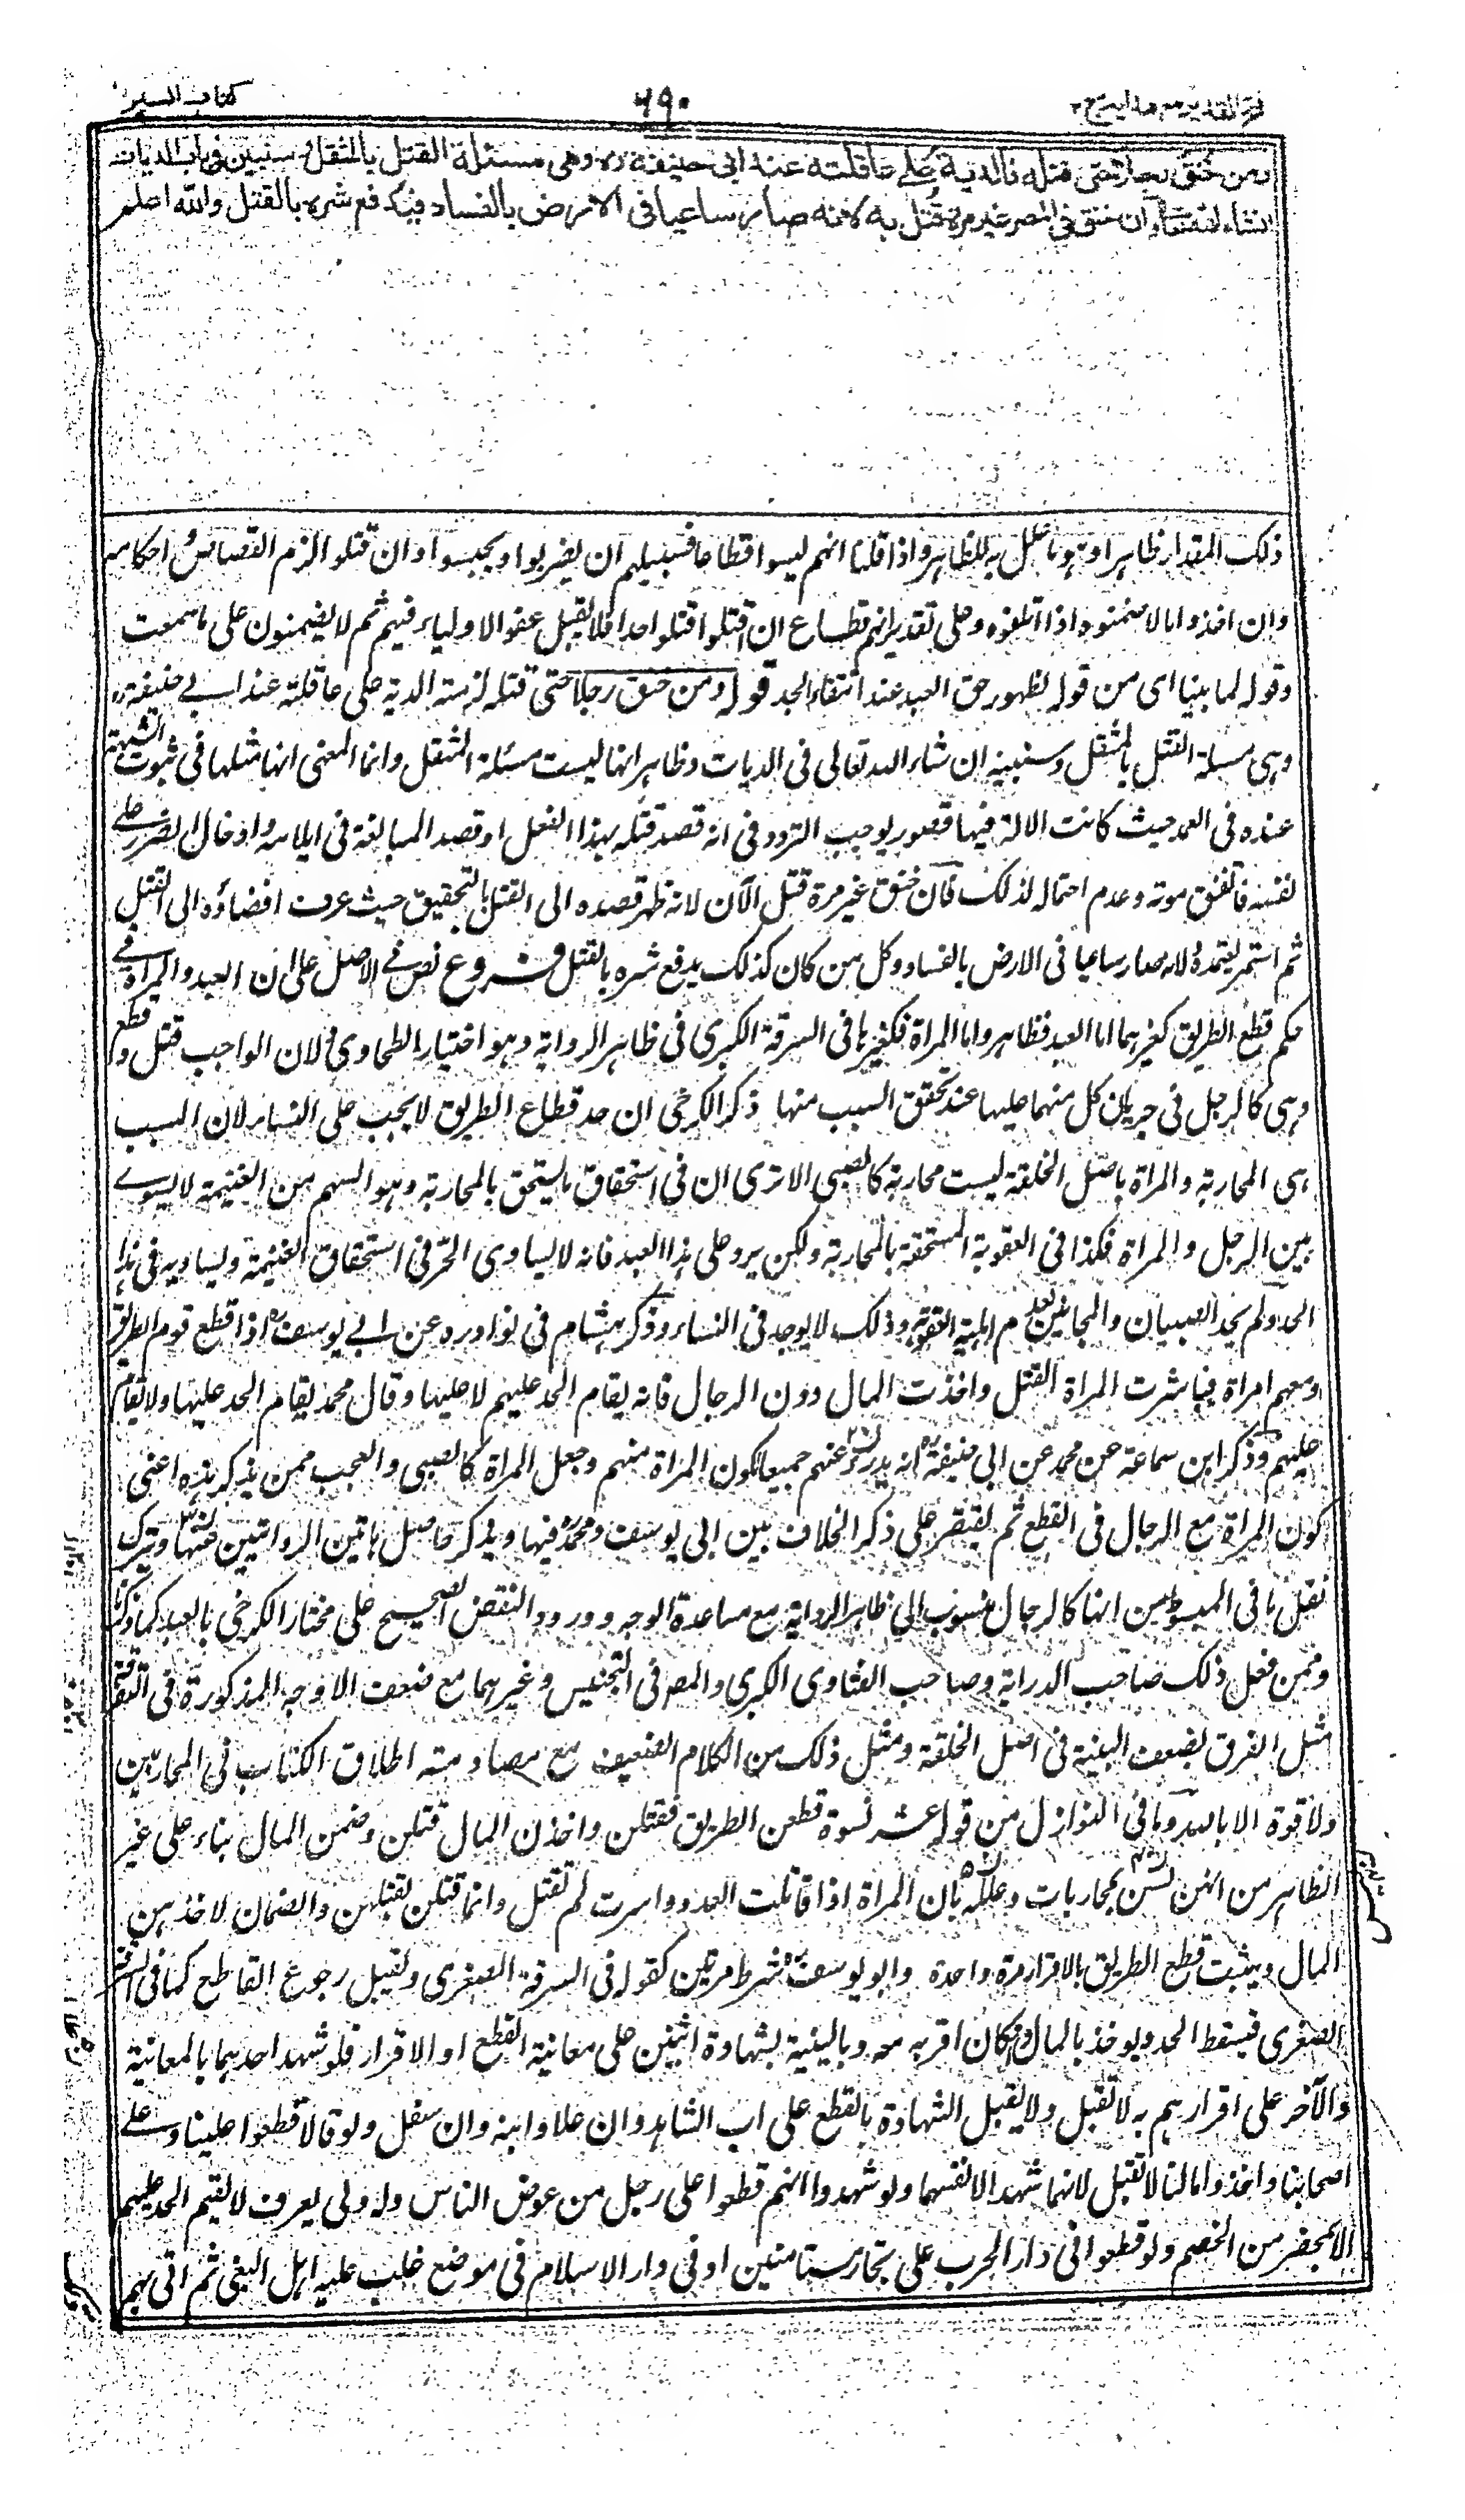 فتح القدير مع هداية ج ٢
٦٩٠
كتاب السير
ومن خنق رجلا حتى قتله فالدية على عاقلته عند ابى حنيفة رح وهى مسئلة القتل بالمثقل وسنبين فى باب الديات
انشاء الله تعالى وان خنق فى المصر غير مرة قتل به لانه صار ساعيا فى الارض بالفساد فيدفع شره بالقتل والله اعلم
ذلك المقدار ظاهرا وهو ما علل به للظاهر واذا قلنا انهم ليسوا قطاعا فسبيلهم ان يضربوا ويحبسوا وان قتلوا لزم القصاص واحكامه
وان اخذوا مالا ضمنوه اذا اتلفوه وعلى تقدير انهم قطاع ان قتلوا قتلوا حدا فلا يقبل عفو الاولياء فيهم ثم لا يضمنون على ما سمعت
وقوله لما بينا اى من قوله لظهور حق العبد عند انتفاء الحد قوله ومن خنق رجلا حتى قتله لزمته الدية على عاقلته عند ابى حنيفة رح
وهى مسئلة القتل بالمثقل وسنبينه ان شاء الله تعالى فى الديات وظاهر انها ليست مسئلة المثقل وانما المعنى انها مثلها فى ثبوت الشبهة
عنده فى العمد حيث كانت الالة فيها قصور يوجب التردد فى انه قصد قتله بهذا الفعل او قصد المبالغة فى ايلامه وادخال الضرر على
نفسه فاتفق موته وعدم احتماله لذلك فان خنق غير مرة قتل الآن لانه ظهر قصده الى القتل بالتحقيق حيث عرف افضاؤه الى القتل
ثم استمر يتعمده لانه صار ساعيا فى الارض بالفساد وكل من كان كذلك يدفع شره بالقتل فروع نص فى الاصل على ان العبد والمرأة فى
حكم قطع الطريق كغيرهما اما العبد فظاهر واما المرأة فكغيرها فى السرقة الكبرى فى ظاهر الرواية وهو اختيار الطحاوى لان الواجب قتل وقطع
وهى كالرجل فى جريان كل منهما عليها عند تحقق السبب منها ذكر الكرخى ان حد قطاع الطريق لا يجب على النساء لان السبب
هى المحاربة والمرأة باصل الخلقة ليست محاربة كالصبى الا ترى ان فى استحقاق ما يستحق بالمحاربة وهو السهم من الغنيمة لا يسوى
بين الرجل والمرأة فكذا فى العقوبة المستحقة بالمحاربة ولكن يرد على هذا العبد فانه لا يساوى الحر فى استحقاق الغنيمة ويساويه فى هذا
الحد ولم يحد الصبيان والمجانين لعدم اهلية العقوبة وذلك لا يوجد فى النساء وذكر هشام فى نوادره عن ابى يوسف رح اذا قطع قوم الطريق
ومعهم امرأة فباشرت المرأة القتل واخذت المال دون الرجال فانه يقام الحد عليهم لا عليها وقال محمد يقام الحد عليها ولا يقام
عليهم وذكر ابن سماعة عن محمد عن ابى حنيفة رح انه يدرأ عنهم جميعا لكون المرأة منهم وجعل المرأة كالصبى والعجب ممن يذكر هذه اعنى
كون المرأة مع الرجال فى القطع ثم يقتصر على ذكر الخلاف بين ابى يوسف ومحمد فيها ويذكر حاصل هاتين الروايتين عنهما ويترك
نقل ما فى المبسوط من انها كالرجال منسوب الى ظاهر الرواية مع مساعدة الوجه وورود النقض الصحيح على مختار الكرخى بالعبد كما ذكرنا
وممن فعل ذلك صاحب الدراية وصاحب الفتاوى الكبرى والمصنف فى التجنيس وغيرهما مع ضعف الاوجه المذكورة فى التفرقة
مثل الفرق بضعف البنية فى اصل الخلقة ومثل ذلك من الكلام الضعيف مع مصادمته اطلاق الكتاب فى المحاربين
ولا قوة الا بالله وما فى النوازل من قوله عشر نسوة قطعن الطريق فقتلن واخذن المال قتلن وضمن المال بناء على غير
الظاهر من انهن لسن بمحاربات وعلله بان المرأة اذا قاتلت العدو واسرت لم تقتل وانما قتلن بقتلهن والضمان لاخذهن
المال ويثبت قطع الطريق بالاقرار مرة واحدة وابو يوسف شرط مرتين كقوله فى السرقة الصغرى ويقبل رجوع القاطع كما فى السرقة
الصغرى فيسقط الحد ويوخذ بالمال ان كان اقر به معه وبالبينة بشهادة اثنين على معاينة القطع او الاقرار فلو شهد احدهما بالمعاينة
والآخر على اقرارهم به لا تقبل ولا يقبل الشهادة بالقطع على اب الشاهد وان علا وابنه وان سفل ولو قالا قطعوا علينا وعلى
اصحابنا واخذوا مالنا لا تقبل لانهما شهدا لانفسهما ولو شهدوا انهم قطعوا على رجل من عرض الناس وله ولى يعرف لا يقيم الحد عليهم
الا بمحضر من الخصم ولو قطعوا فى دار الحرب على تجار مستأمنين او فى دار الاسلام فى موضع غلب عليه اهل البغى ثم اتى بهم